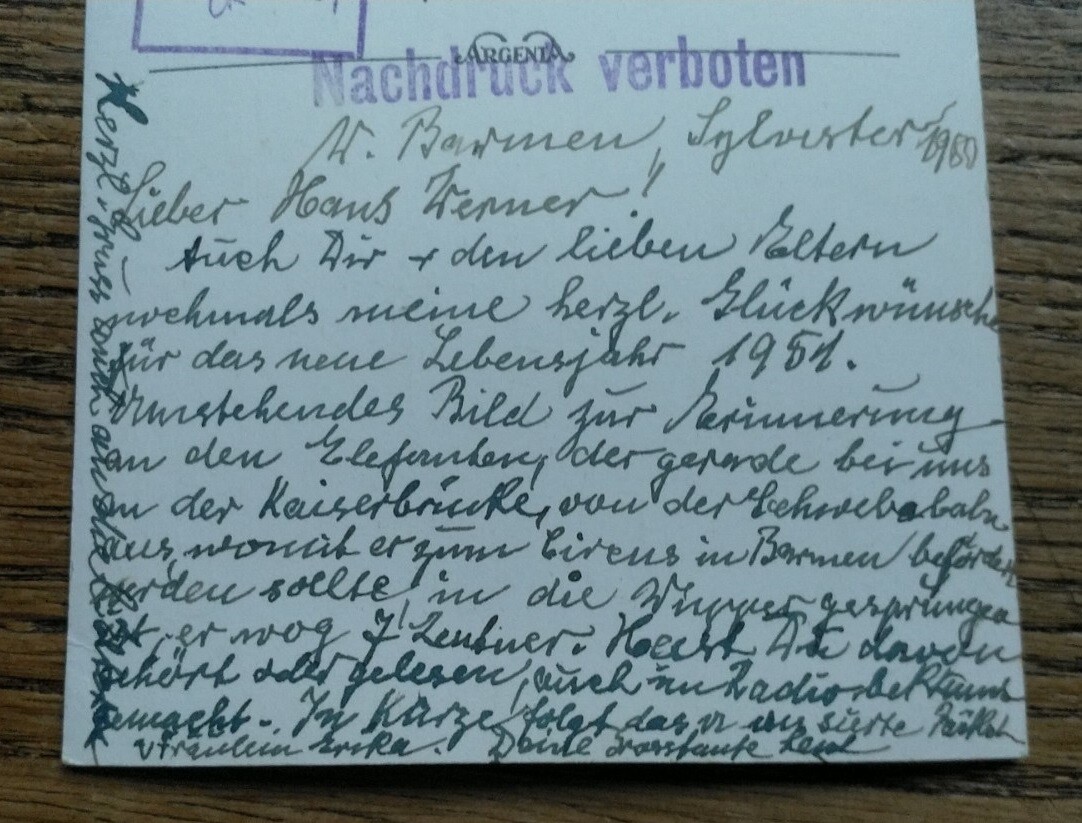 ARGENTA
Nachdruck verboten
W. Barmen, Sylvester 1950
Lieber Hans Werner!
Auch Dir + den lieben Eltern
nochmals meine herzl. Glückwünsche
für das neue Lebensjahr 1951.
Umstehendes Bild zur Erinnerung
an den Elefanten, der gerade bei uns
an der Kaiserbrücke, von der Schwebebahn
aus, womit er zum Circus in Barmen befördert
werden sollte in die Wupper gesprungen
ist, er wog 7 Zentner. Hast Du davon
gehört oder gelesen, auch im Radio bekannt
gemacht. In Kürze folgt das
Fräulein Erika. Deine
Herzl. Gruss